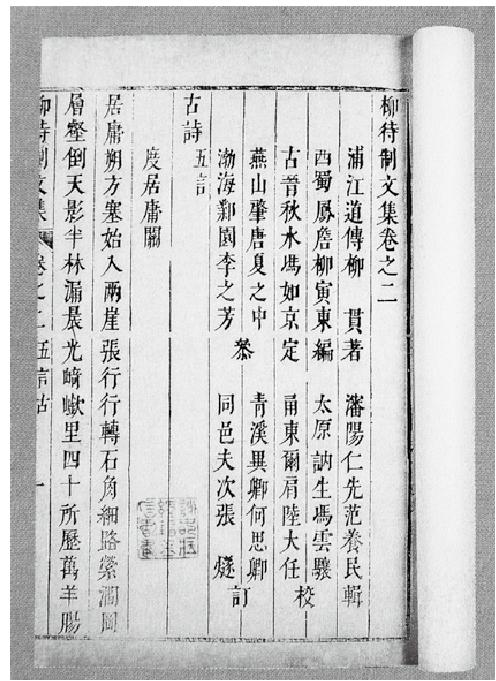 柳待制文集卷之二
浦江道傳柳　貫著　瀋陽仁先范養民輯
西蜀鳳詹柳寅東編　太原訥生馮雲驤
古晉秋水馮如京定　甬東爾肩陸大任　校
燕山肇唐夏之中　青溪異卿何思卿
渤海鄴園李之芳　叅　同邑夫次張　燧　訂
古詩
五言
度居庸關
居庸朔方塞始入兩崖張行行轉石角細路縈澗岡
層壑倒天影半林漏晨光﨑嶔里四十所歷萬羊腸
柳待制文集　卷之二　五言古　一